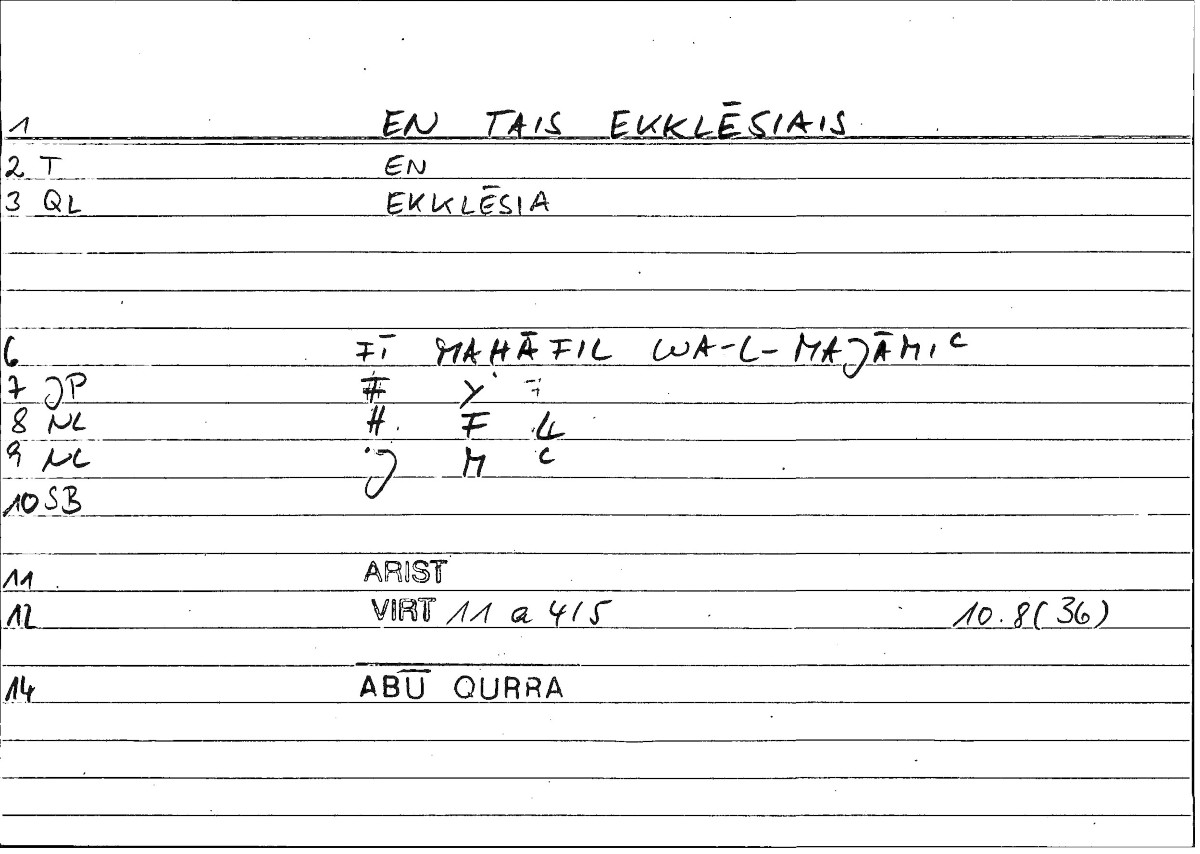 1 EN TAIS EKKLĒSIAIS
2 T EN
3 QL EKKLĒSIA
6 FĪ MAHĀFIL WA-L-MAJĀMIC
7 JP F Y F
8 NL H. F L
9 NL J M C
10 SB
11 ARIST
12 VIRT 11 a 4/5 10.8(36)
14 ABŪ QURRA